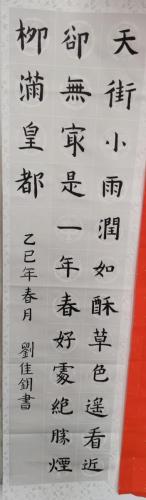 天街小雨潤如酥草色遙看近
卻無㝡是一年春好處絕勝煙
栁滿皇都
乙巳年春月
劉佳鈅書